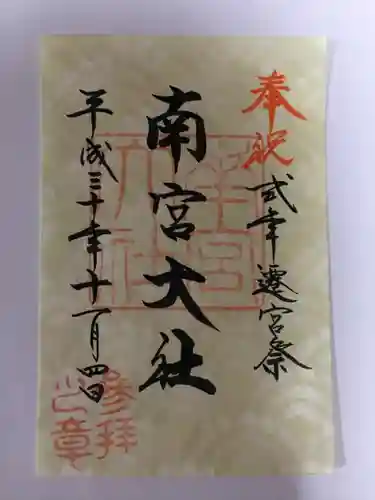 奉祝
式年遷宮祭
南宮大社
平成三十年十一月四日
南宮
大社
参拝
之章